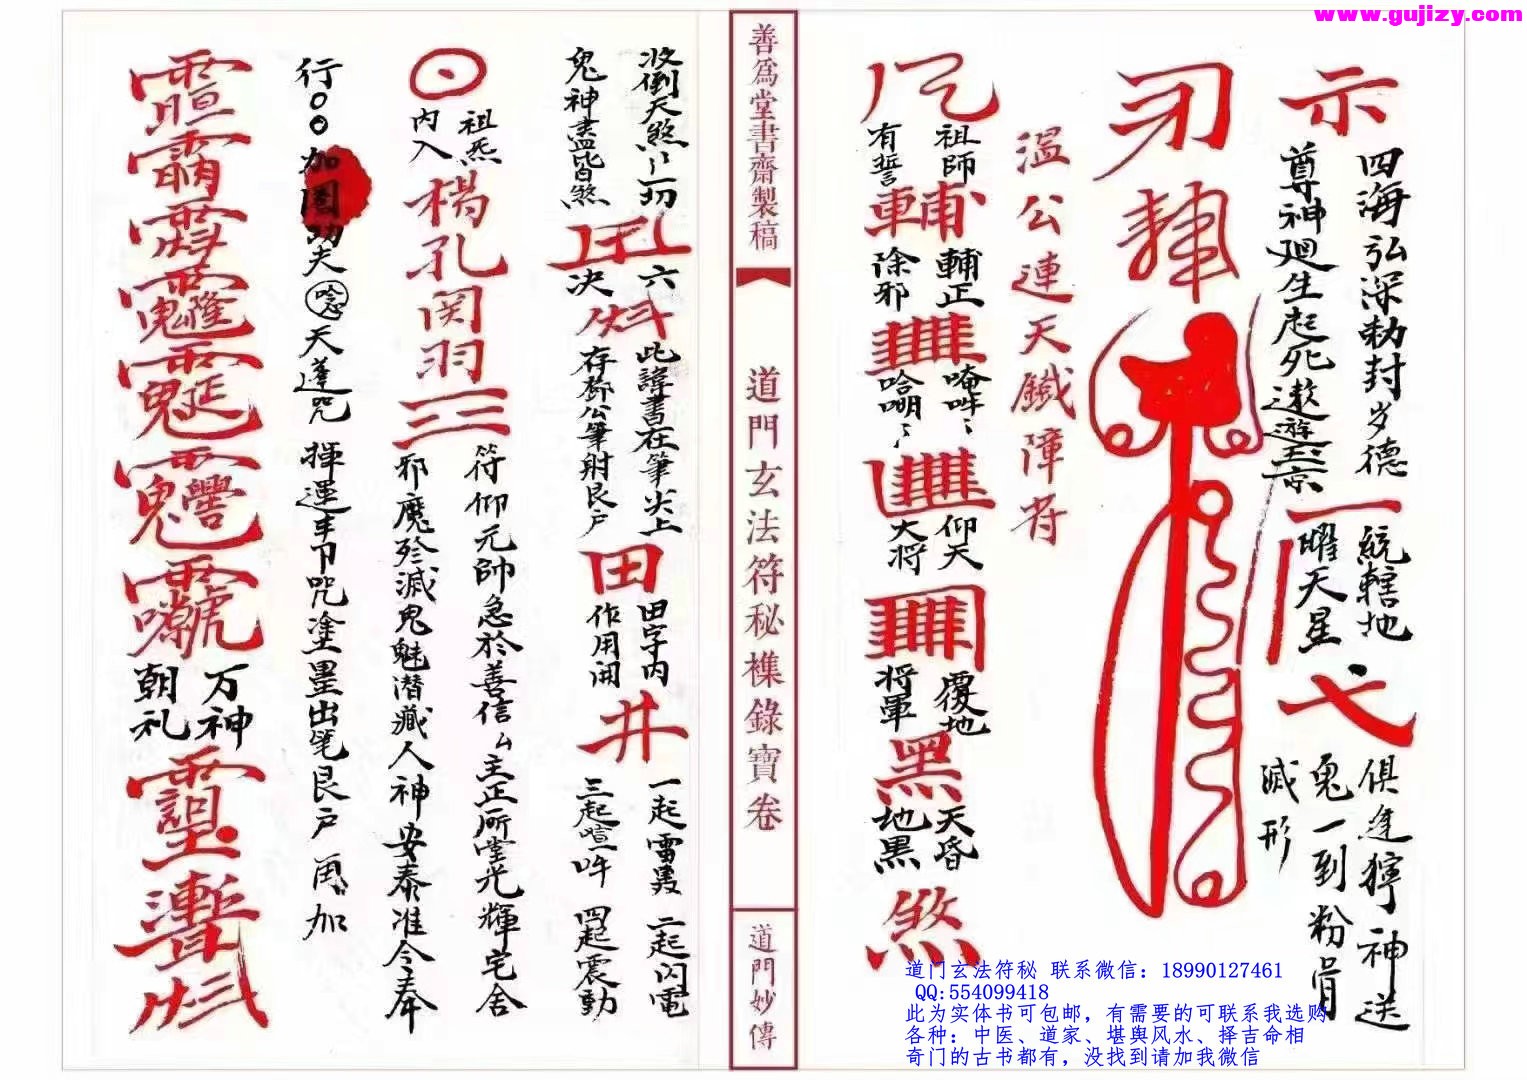 www.gujizy.com
示
四海弘深勅封岁德
尊神廻生起死遨遊玉京
統轄地
曜天星
俱逹獰神送
鬼一到粉骨
滅形
温公連天鐵障符
祖師
有誓
輔正
除邪
唵吽
哈嗍
仰天
大将
覆地
将軍
黑
天昏
地黒
煞
善為堂書齋製稿
道門玄法符秘襍錄寶卷
道門妙傳
收倒天煞一切
鬼神盡皆煞
六
决
此諱書在筆尖上
存柳公筆射艮户
田
田字内
作用開
井
一起雷轰 二起閃電
三起喧吽 四起震動
祖炁
内入
楊
孔
関
羽
三
符仰元帥急於善信厶主正所堂光輝宅舍
邪魔殄滅鬼魅潜藏人神安泰准令奉
行○○加罡功夫唸天蓬咒 揮運手印咒塗墨出笔艮户 再加
万神
朝礼
道门玄法符秘 联系微信：18990127461
QQ:554099418
此为实体书可包邮，有需要的可联系我选购
各种：中医、道家、堪舆风水、择吉命相
奇门的古书都有，没找到请加我微信